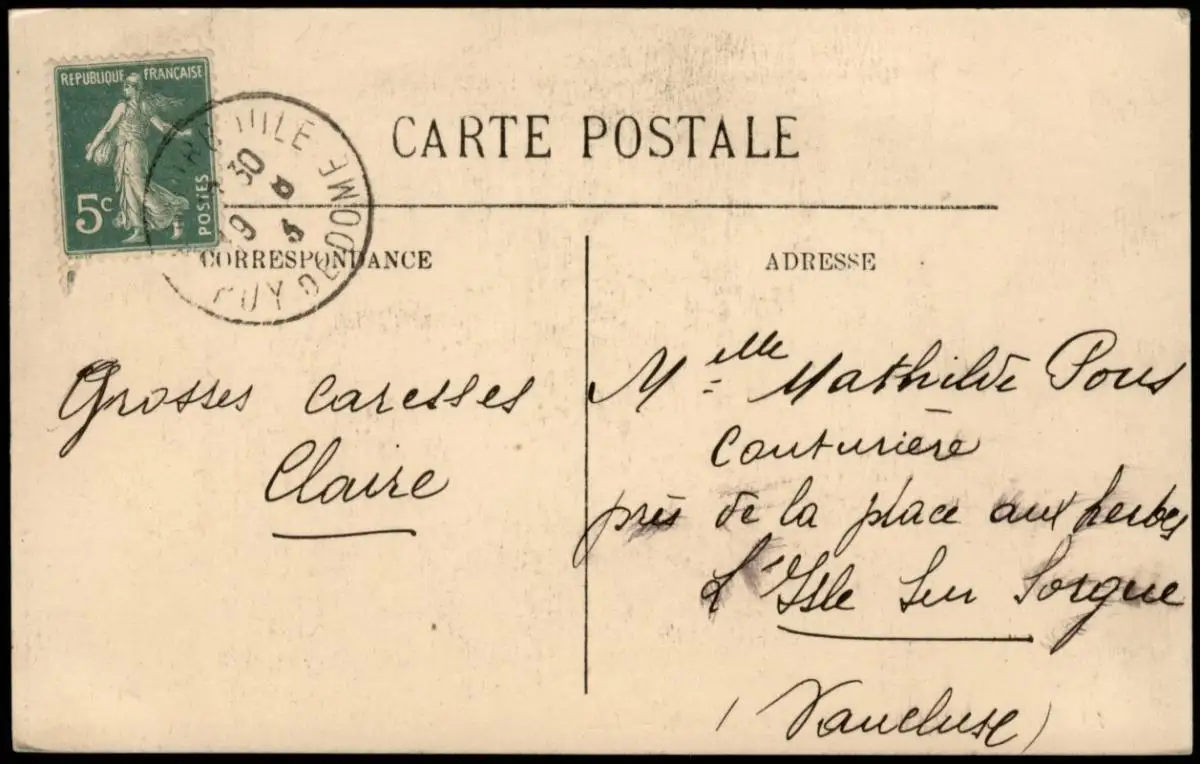 REPUBLIQUE FRANÇAISE
5c
POSTES
30
19 5
PUY DE DOME
CARTE POSTALE
CORRESPONDANCE
ADRESSE
Grosses caresses
Claire
Melle Mathilde Pons
Couturière
près de la place aux herbes
L'Isle Sur Sorgue
(Vaucluse)